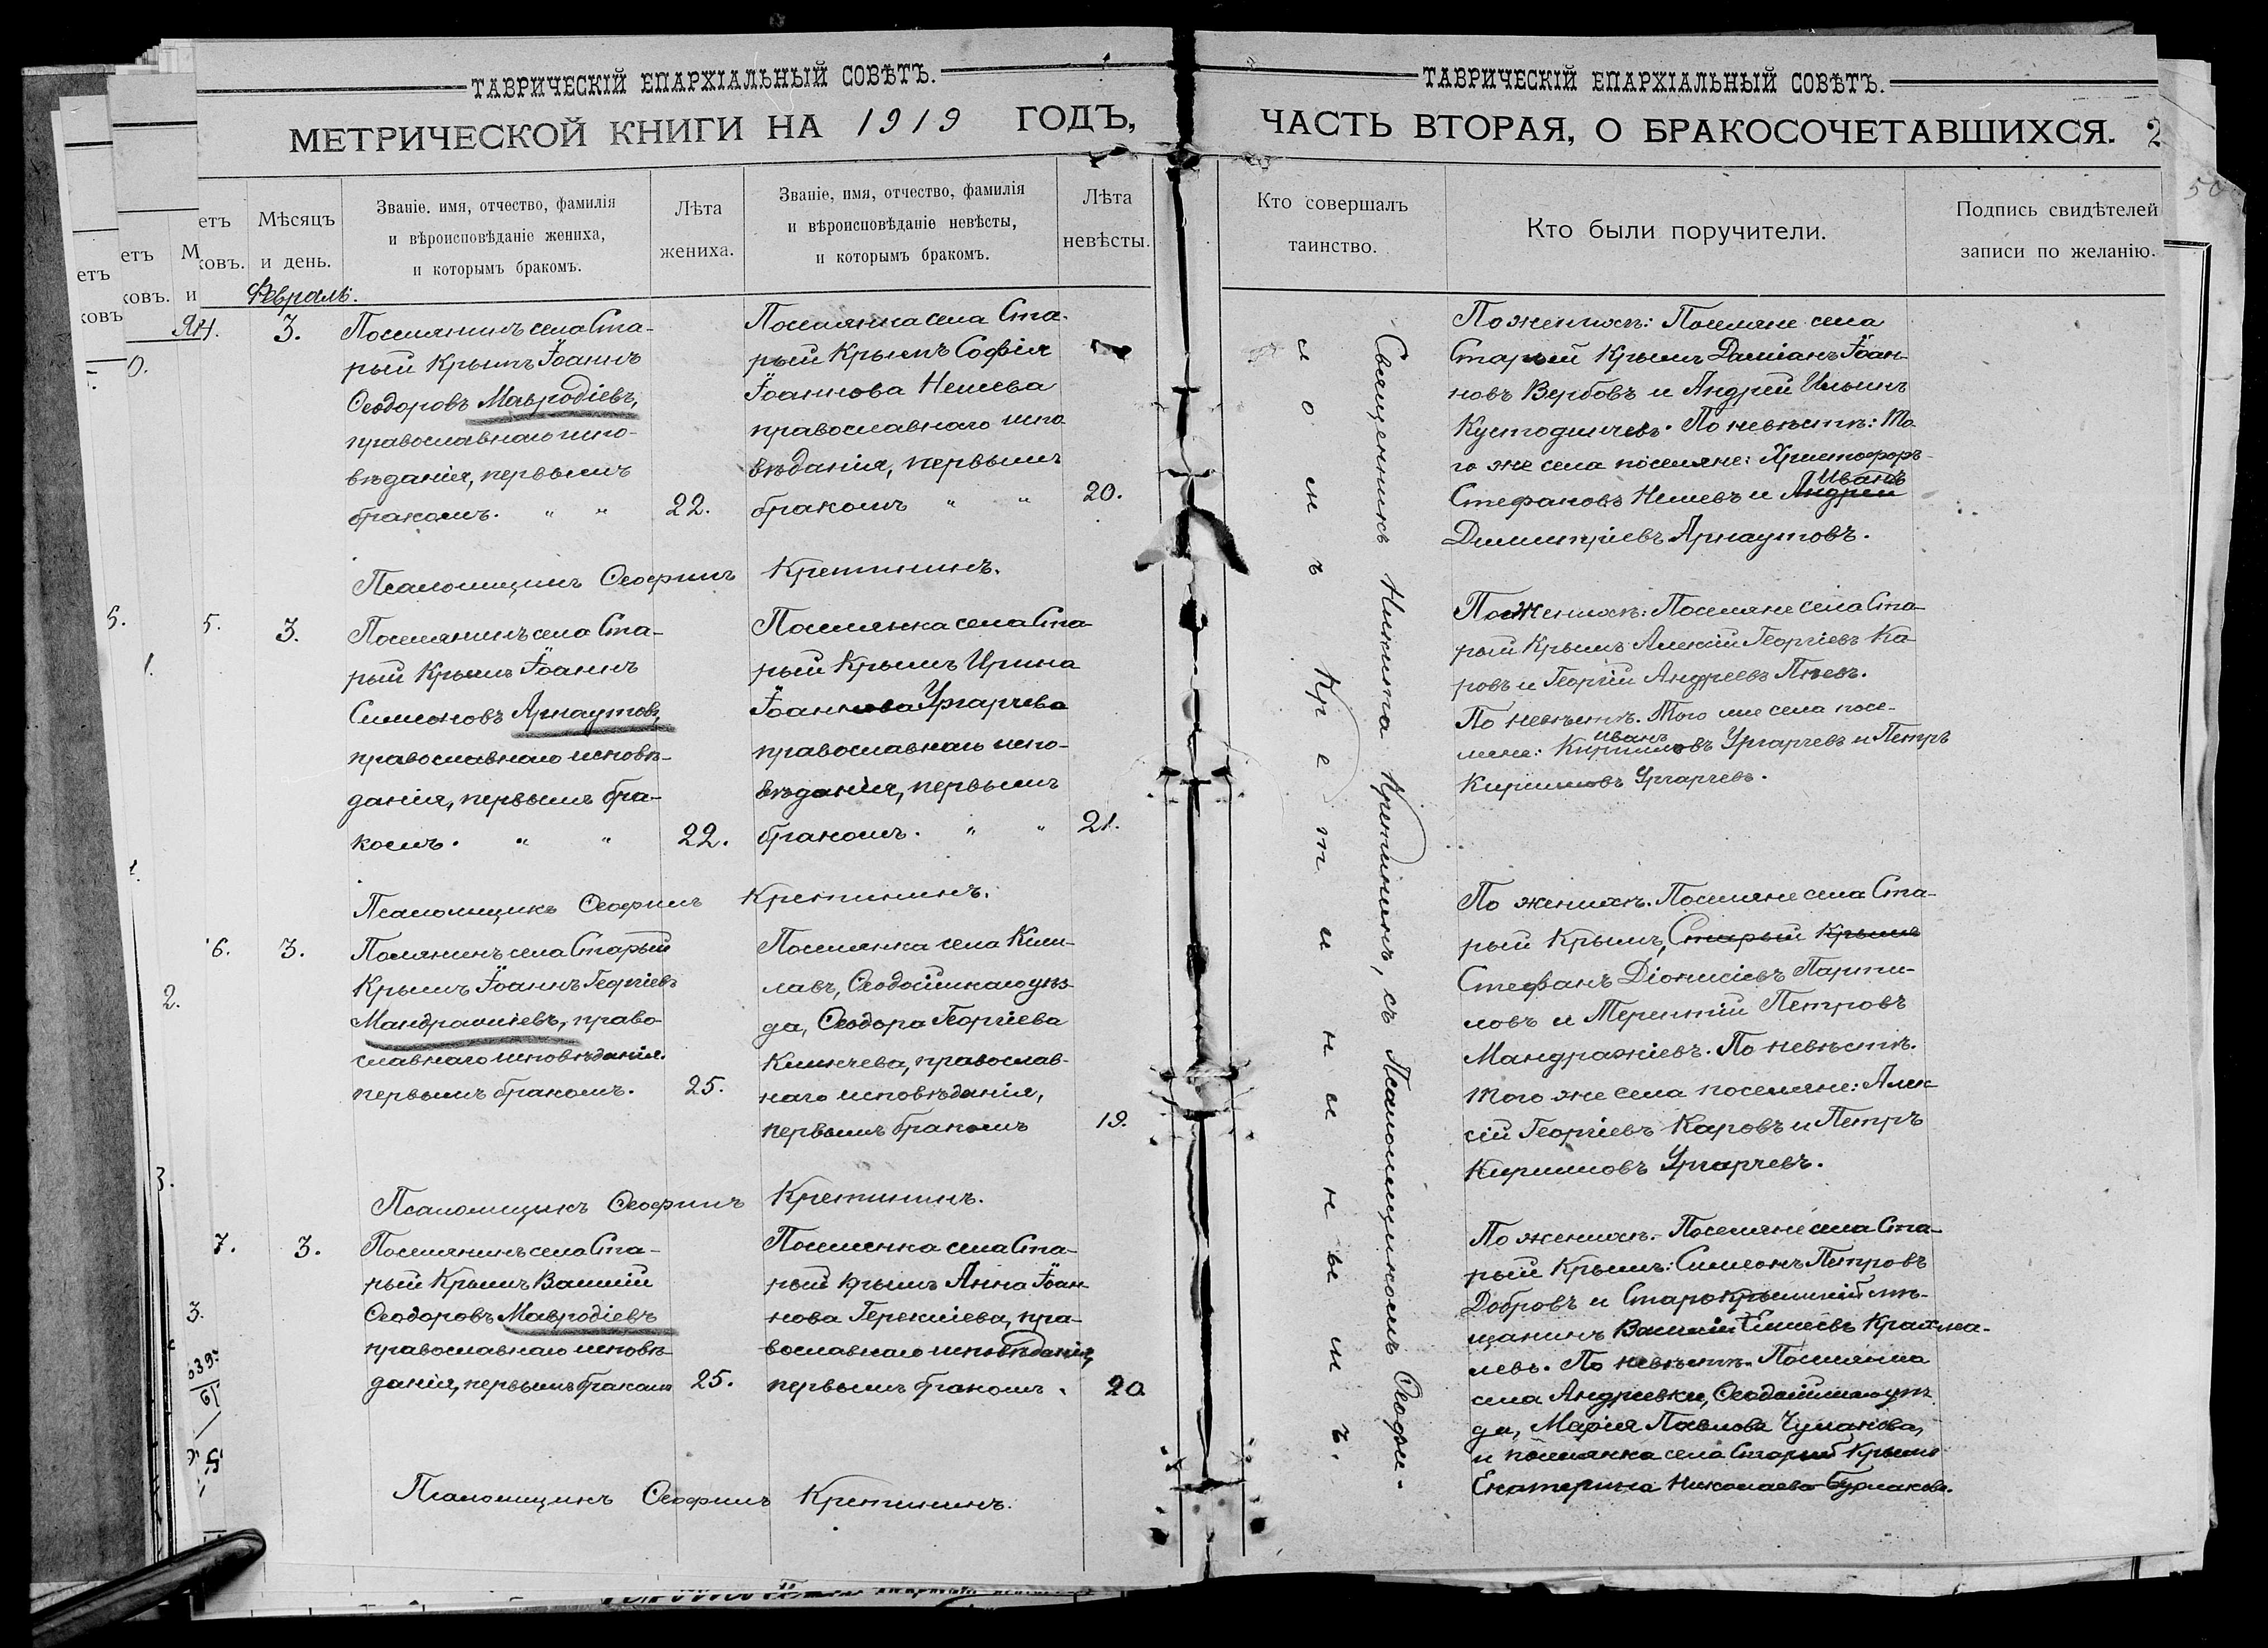 ТАВРИЧЕСКІЙ ЕПАРХІАЛЬНЫЙ СОВѢТЪ.
МЕТРИЧЕСКОЙ КНИГИ НА 1919 ГОДЪ,
Мѣсяцъ
и день.
Званіе, имя, отчество, фамилія
и вѣроисповѣданіе жениха,
и которымъ бракомъ.
Лѣта
жениха.
Званіе, имя, отчество, фамилія
и вѣроисповѣданіе невѣсты,
и которымъ бракомъ.
Лѣта
невѣсты.
Февраль.
3.
Поселянинъ села Ста-
рый Крымъ Іоаннъ
Ѳеодоровъ Мавродіевъ,
православнаго испо-
вѣданія, первымъ
бракомъ. " " 22.
Поселянка села Ста-
рый Крымъ Софія
Іоаннова Нешева
православнаго испо
вѣданія, первымъ
бракомъ " " 20.
Псаломщикъ Ѳеофилъ Кретининъ.
5. 3.
Поселянинъ села Ста-
рый Крымъ Іоаннъ
Симеоновъ Арнаутовъ,
православнаго исповѣ-
данія, первымъ бра-
комъ. " " 22.
Поселянка села Ста
рый Крымъ Ирина
Іоаннова Ургарчева
православнаго испо-
вѣданія, первымъ
бракомъ. " " 21.
Псаломщикъ Ѳеофилъ Кретининъ.
6. 3.
Полянинъ села Старый
Крымъ Іоаннъ Георгіевъ
Мандражіевъ, право-
славнаго исповѣданія.
первымъ бракомъ. 25.
Поселянка села Киш-
лавъ, Ѳеодосійскаго уѣз-
да, Ѳеодора Георгіева
православ-
наго исповѣданія,
первымъ бракомъ 19.
Псаломщикъ Ѳеофилъ Кретининъ.
7. 3.
Поселянинъ села Ста-
рый Крымъ Василій
Ѳеодоровъ Мавродіевъ
православнаго исповѣ-
данія, первымъ бракомъ 25.
Поселенка села Ста-
рый Крымъ Анна Іоан-
нова пра-
вославнаго исповѣданія,
первымъ бракомъ. 20
Псаломщикъ Ѳеофилъ Кретининъ.
ТАВРИЧЕСКІЙ ЕПАРХІАЛЬНЫЙ СОВѢТЪ.
ЧАСТЬ ВТОРАЯ, О БРАКОСОЧЕТАВШИХСЯ. 2
Кто совершалъ
таинство.
Кто были поручители.
Подпись свидѣтелей
записи по желанію.
Священникъ Никита Кретининъ, съ Псаломщикомъ Ѳеофи-
ломъ Кретининымъ.
По женихѣ: Поселяне села
Старый Крымъ Даміанъ Іоан-
новъ Вербовъ и Андрей Ильинъ
По невѣстѣ: То
го же села поселяне: Христофоръ
Стефановъ Нешевъ и Андрей Иванъ
Димитріевъ Арнаутовъ.
По женихѣ: Поселяне села Ста-
рый Крымъ Алексій Георгіевъ Ка
ровъ и Георгій Андреевъ
По невѣстѣ. Того же села посе-
ляне: Иванъ Кирилловъ Ургарчевъ и Петръ
Кирилловъ Ургарчевъ.
По женихѣ. Поселяне села Ста-
рый Крымъ, Старый Крымъ
Стефанъ Діонисіевъ Парти-
ловъ и Терентій Петровъ
Мандражіевъ. По невѣстѣ.
Того же села поселяне: Алек
сій Георгіевъ Каровъ и Петръ
Кирилловъ Ургарчевъ.
По женихѣ. Поселяне села Ста-
рый Крымъ: Симеонъ Петровъ
Добровъ и Старокрымскій мѣ-
щанинъ Василій Крахма-
левъ. По невѣстѣ. Поселянка
села Андреевки, Ѳеодосійскаго уѣз
да, Марія Павлова Чумакова,
и поселянка села Старый Крымъ
Екатерина Николаева Бурлакова.
50